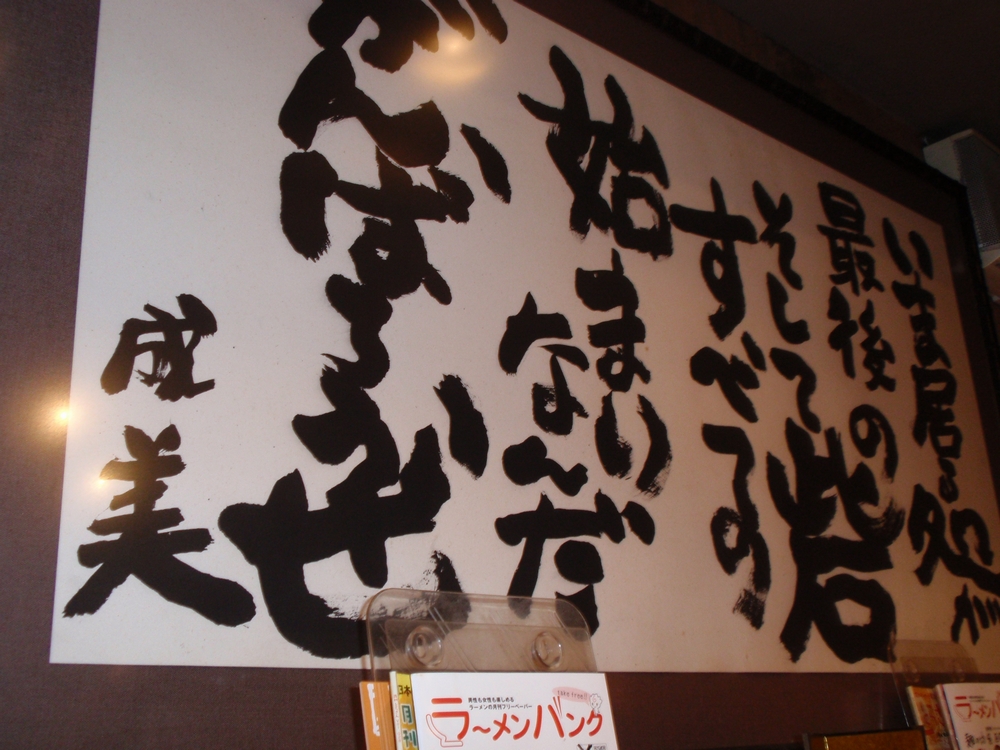 いま居る処が
最後の砦
そして
すべての
始まり
なんだ
がんばろうぜ
成美
男性も女性も楽しめる
ラーメンの月刊フリーペーパー
ラ〜メンバンク
月刊
ラ〜メン